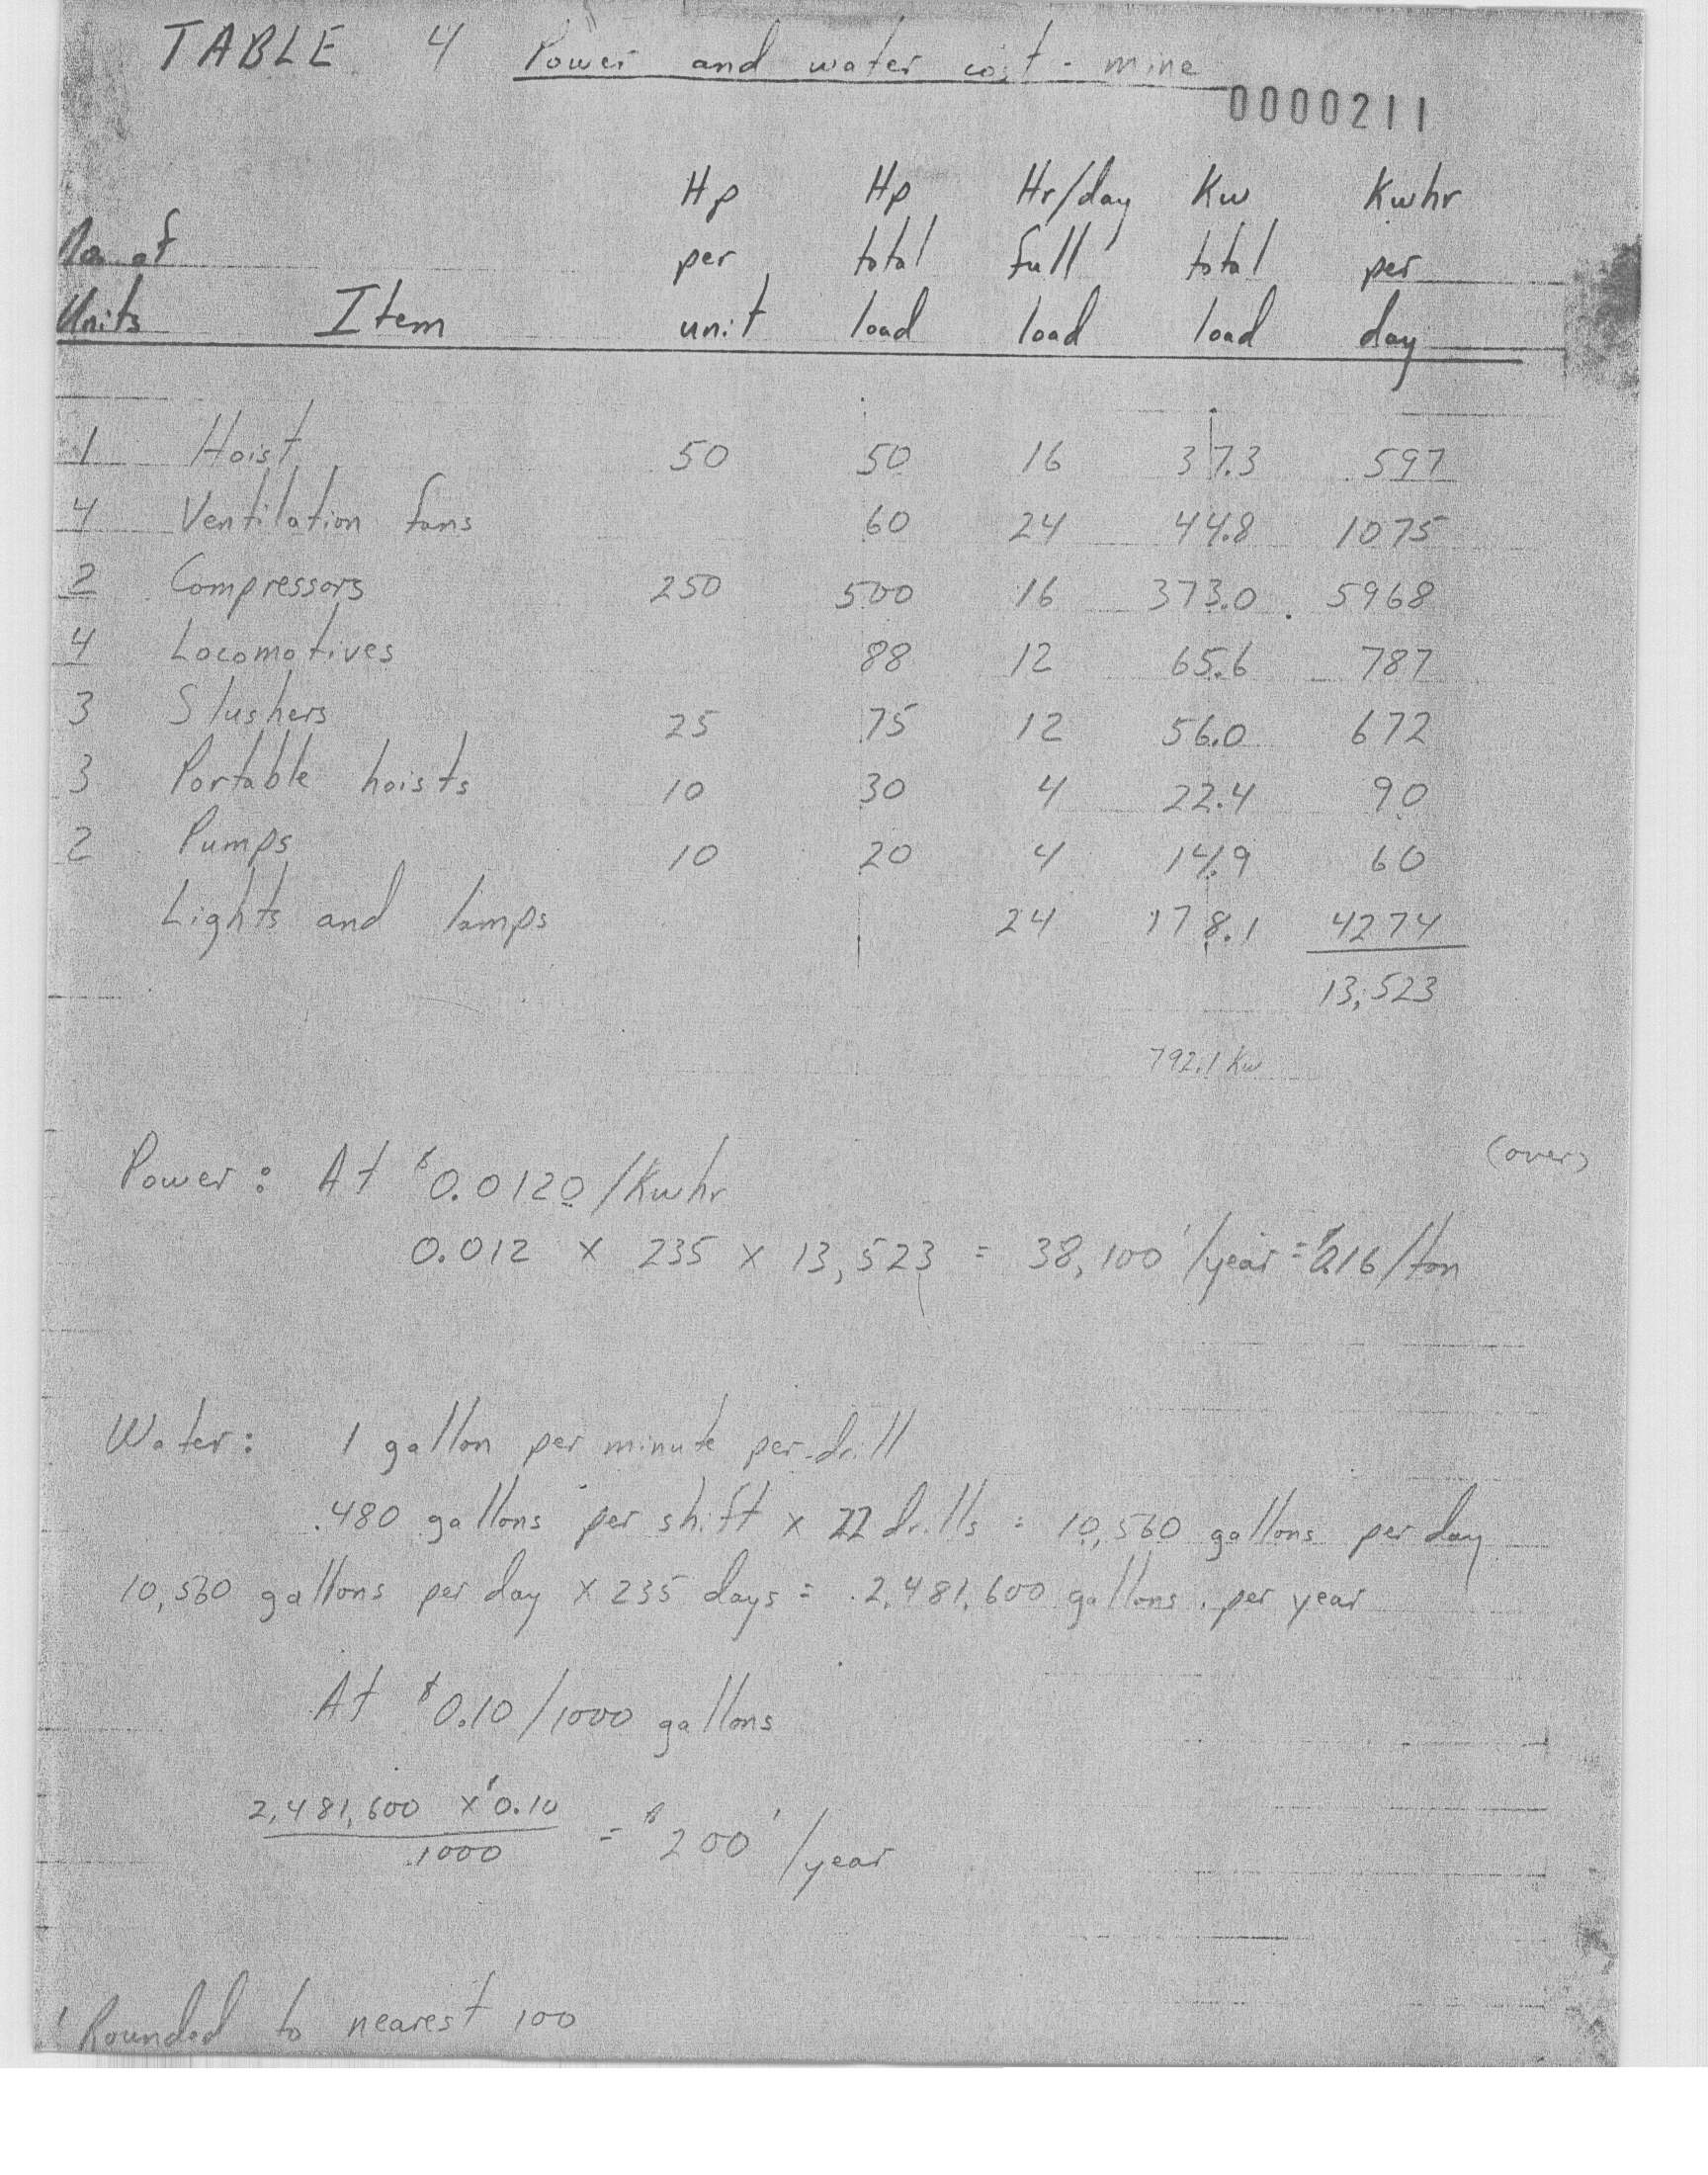 TABLE 4 Power and water cost - mine
0000211
Hp Hp Hr/day Kw Kwhr
No. of per total full total per
Units Item unit load load load day
1 Hoist 50 50 16 37.3 597
4 Ventilation fans 60 24 44.8 1075
2 Compressors 250 500 16 373.0 5968
4 Locomotives 88 12 65.6 787
3 Slushers 25 75 12 56.0 672
3 Portable hoists 10 30 4 22.4 90
2 Pumps 10 20 4 14.9 60
Lights and lamps 24 178.1 4274
13,523
792.1 Kw
(over)
Power: At $0.0120/Kwhr
0.012 x 235 x 13,523 = 38,100' /year = $0.216/ton
Water: 1 gallon per minute per drill
480 gallons per shift x 22 drills = 10,560 gallons per day
10,560 gallons per day x 235 days = 2,481,600 gallons per year
At $0.10/1000 gallons
2,481,600 x $0.10
1000
= $200' /year
' Rounded to nearest 100